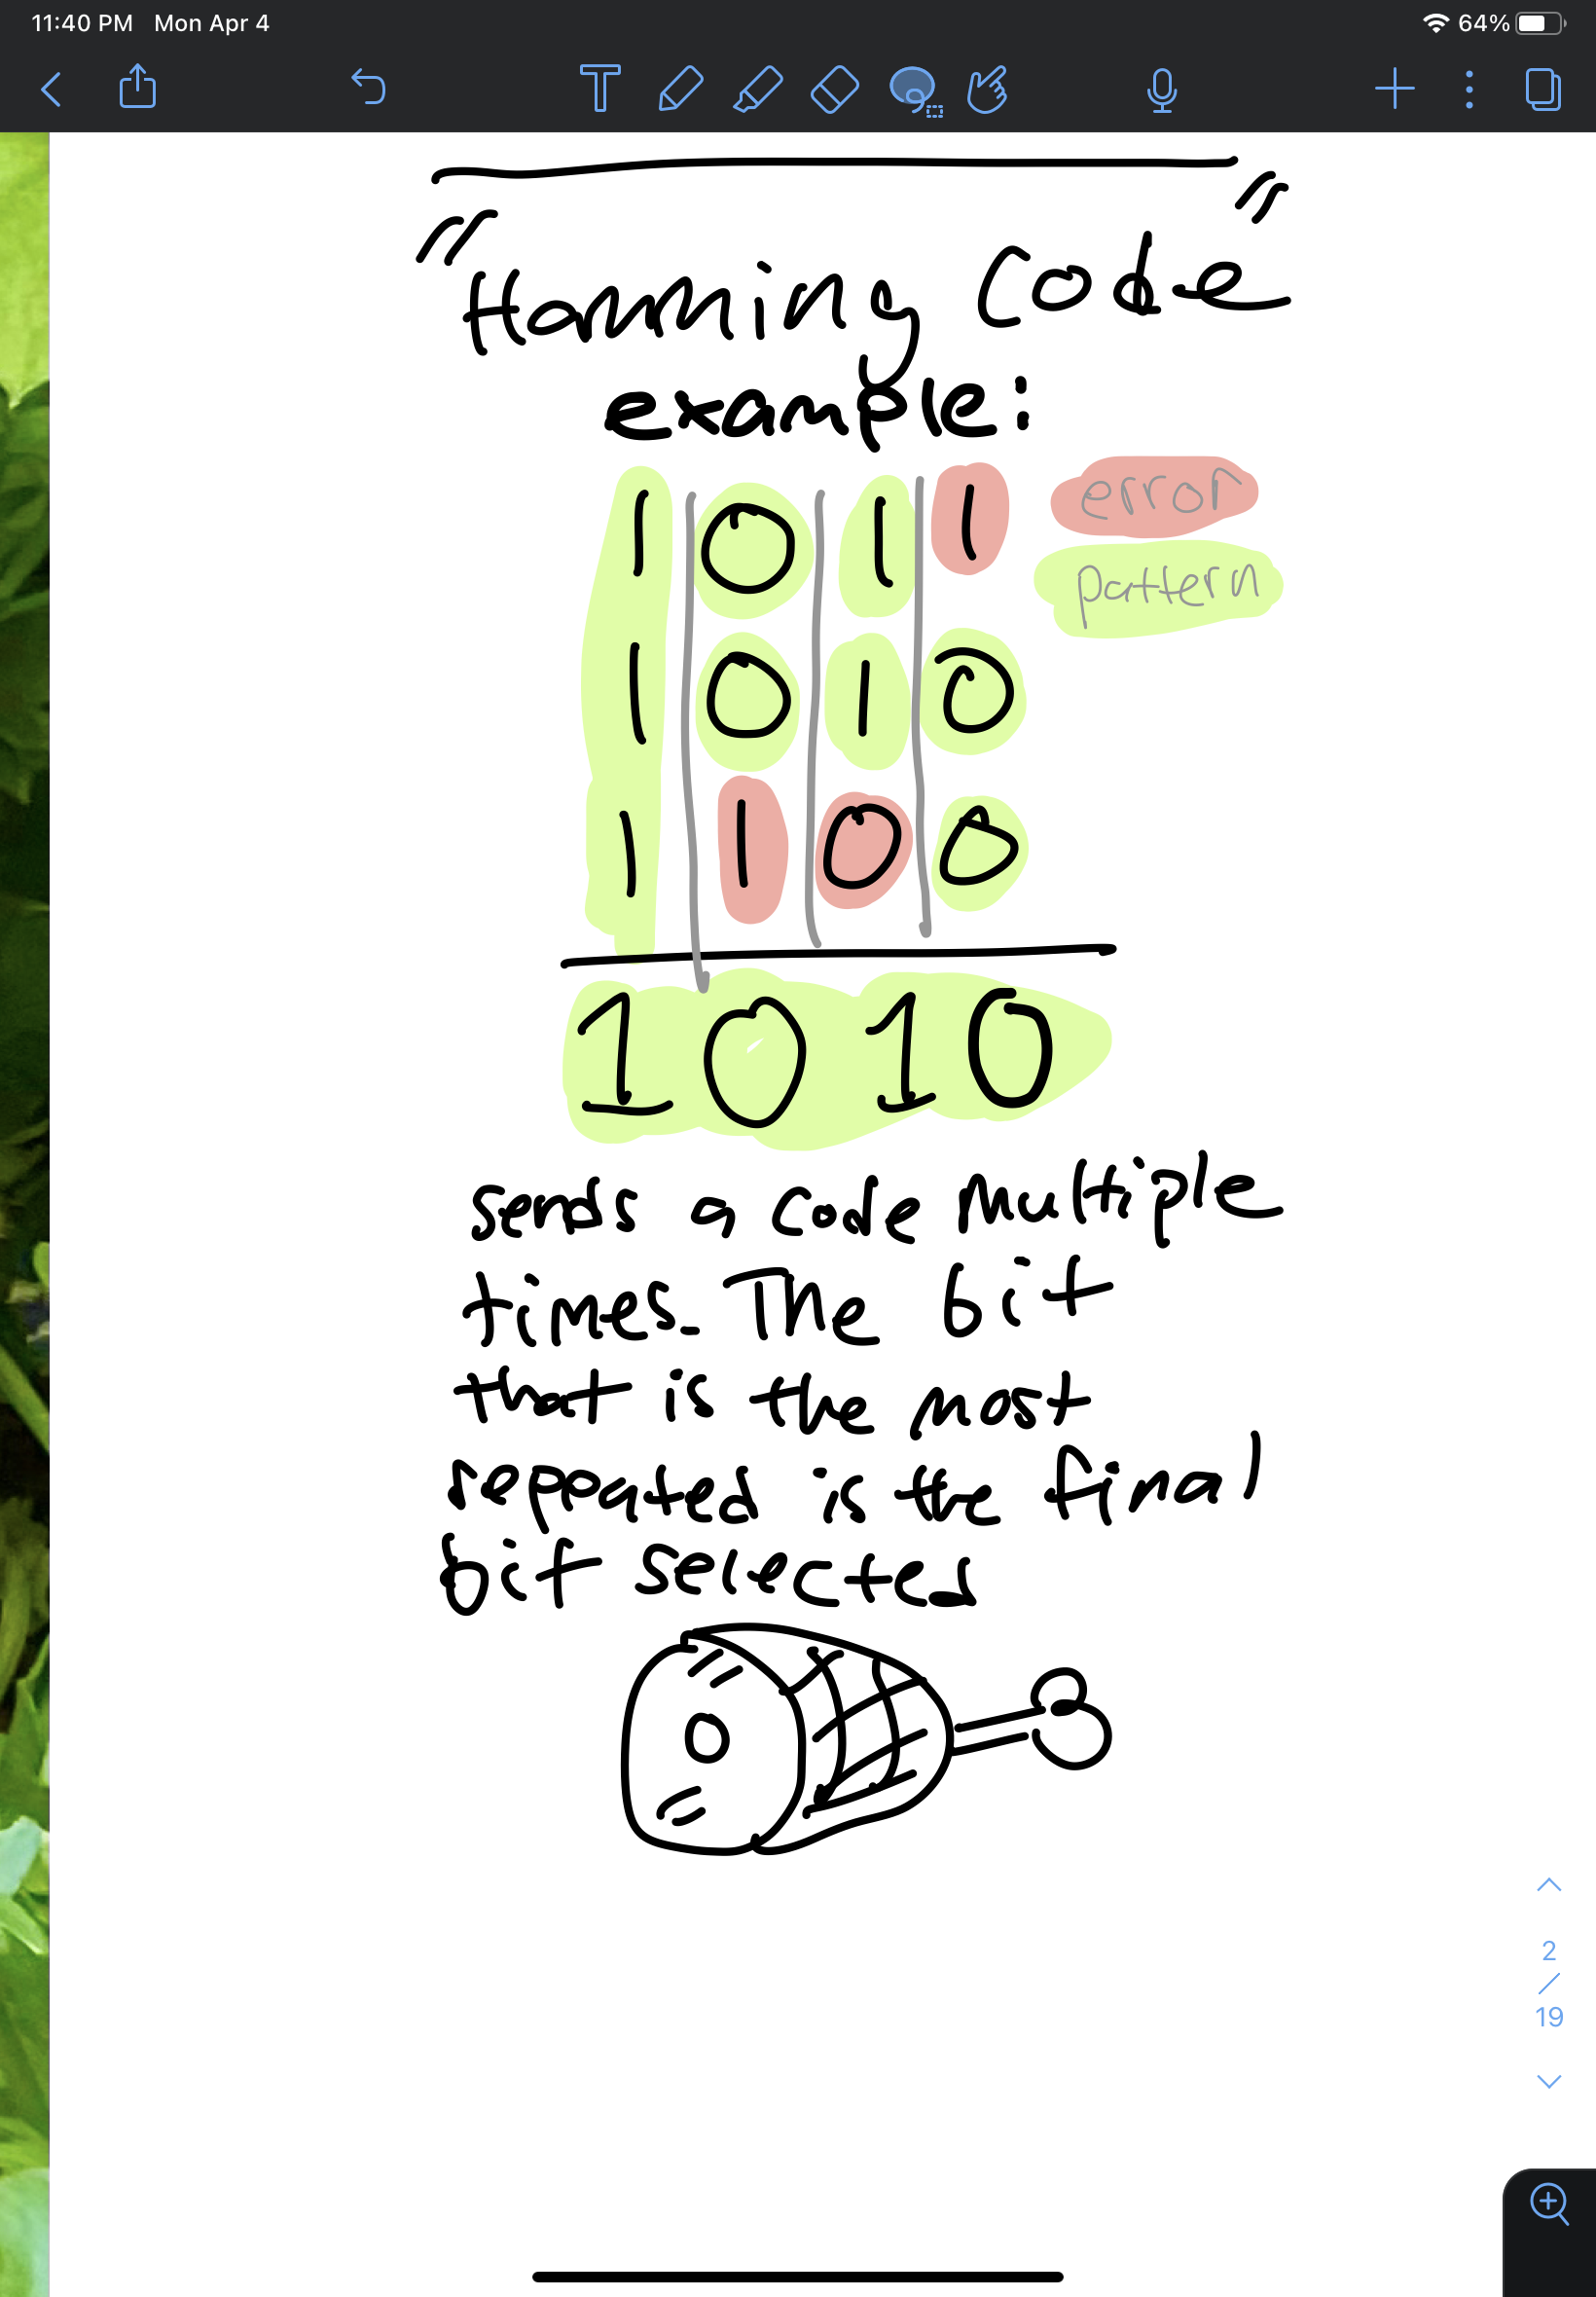 11:40 PM Mon Apr 4 64%
T
"Hamming Code"
example:
1 0 1 1 error
pattern
1 0 1 0
1 1 0 0
1 0 1 0
sends a code multiple
times. The bit
that is the most
repeated is the final
bit selected
2
/
19